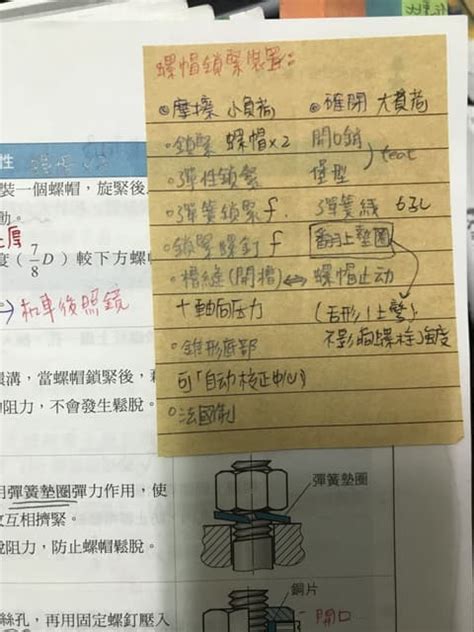 螺帽鎖緊裝置:
⊙摩擦 小負荷 ⊙確閉 大負荷
○鎖緊 螺帽x2 開口銷
○彈性鎖緊 堡型
○彈簧鎖緊f. 彈簧線 6孔
○鎖緊螺釘f 翻上墊圈
○槽縫(開槽) ↔ 螺帽止动
+軸向压力 (舌形1上彎)
不影响螺栓強度
○錐形底部
可「自动校正中心」
○法國制
性
裝一個螺帽,旋緊後
動。
上厚
度(7/8 D)較下方螺
→ 机車後照鏡
環溝,當螺帽鎖緊後,
阻力,不會發生鬆脫。
用彈簧墊圈彈力作用,使
互相擠緊。
阻力,防止螺帽鬆脫。
彈簧墊圈
銅片
開口
絲孔,再用固定螺釘壓入